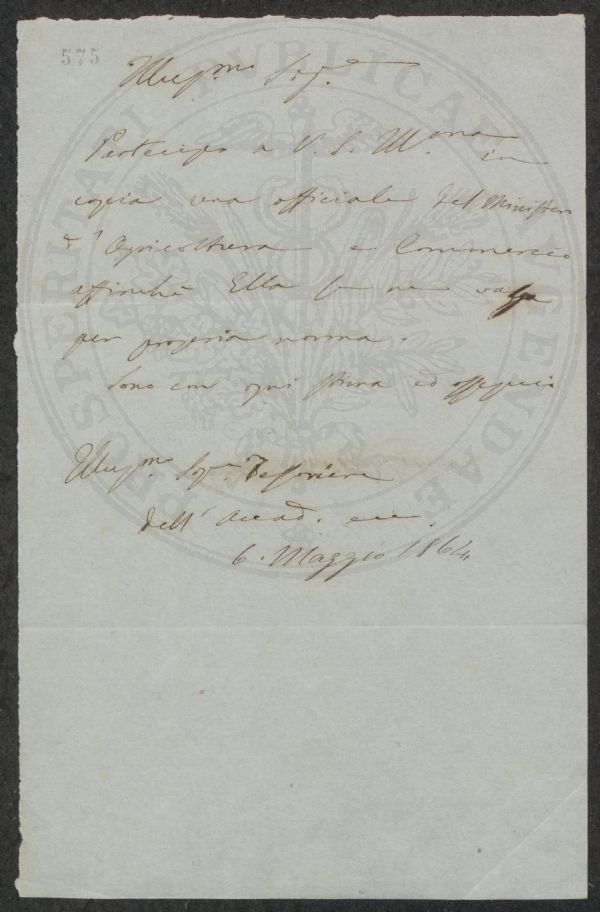 575
Illus.mo Sig.r
Partecipo a V. S. Ill.ma in
copia una officiale del Minister
d'Agricoltura e Commercio
affinchè Ella se ne valga
per propria norma.
Sono con ogni stima ed ossequio
Illus.mo Sig.r Tesoriere
dell'Accad. ecc.
6. Maggio 1864
PROSPERITATI PUBLICAE AUGENDAE